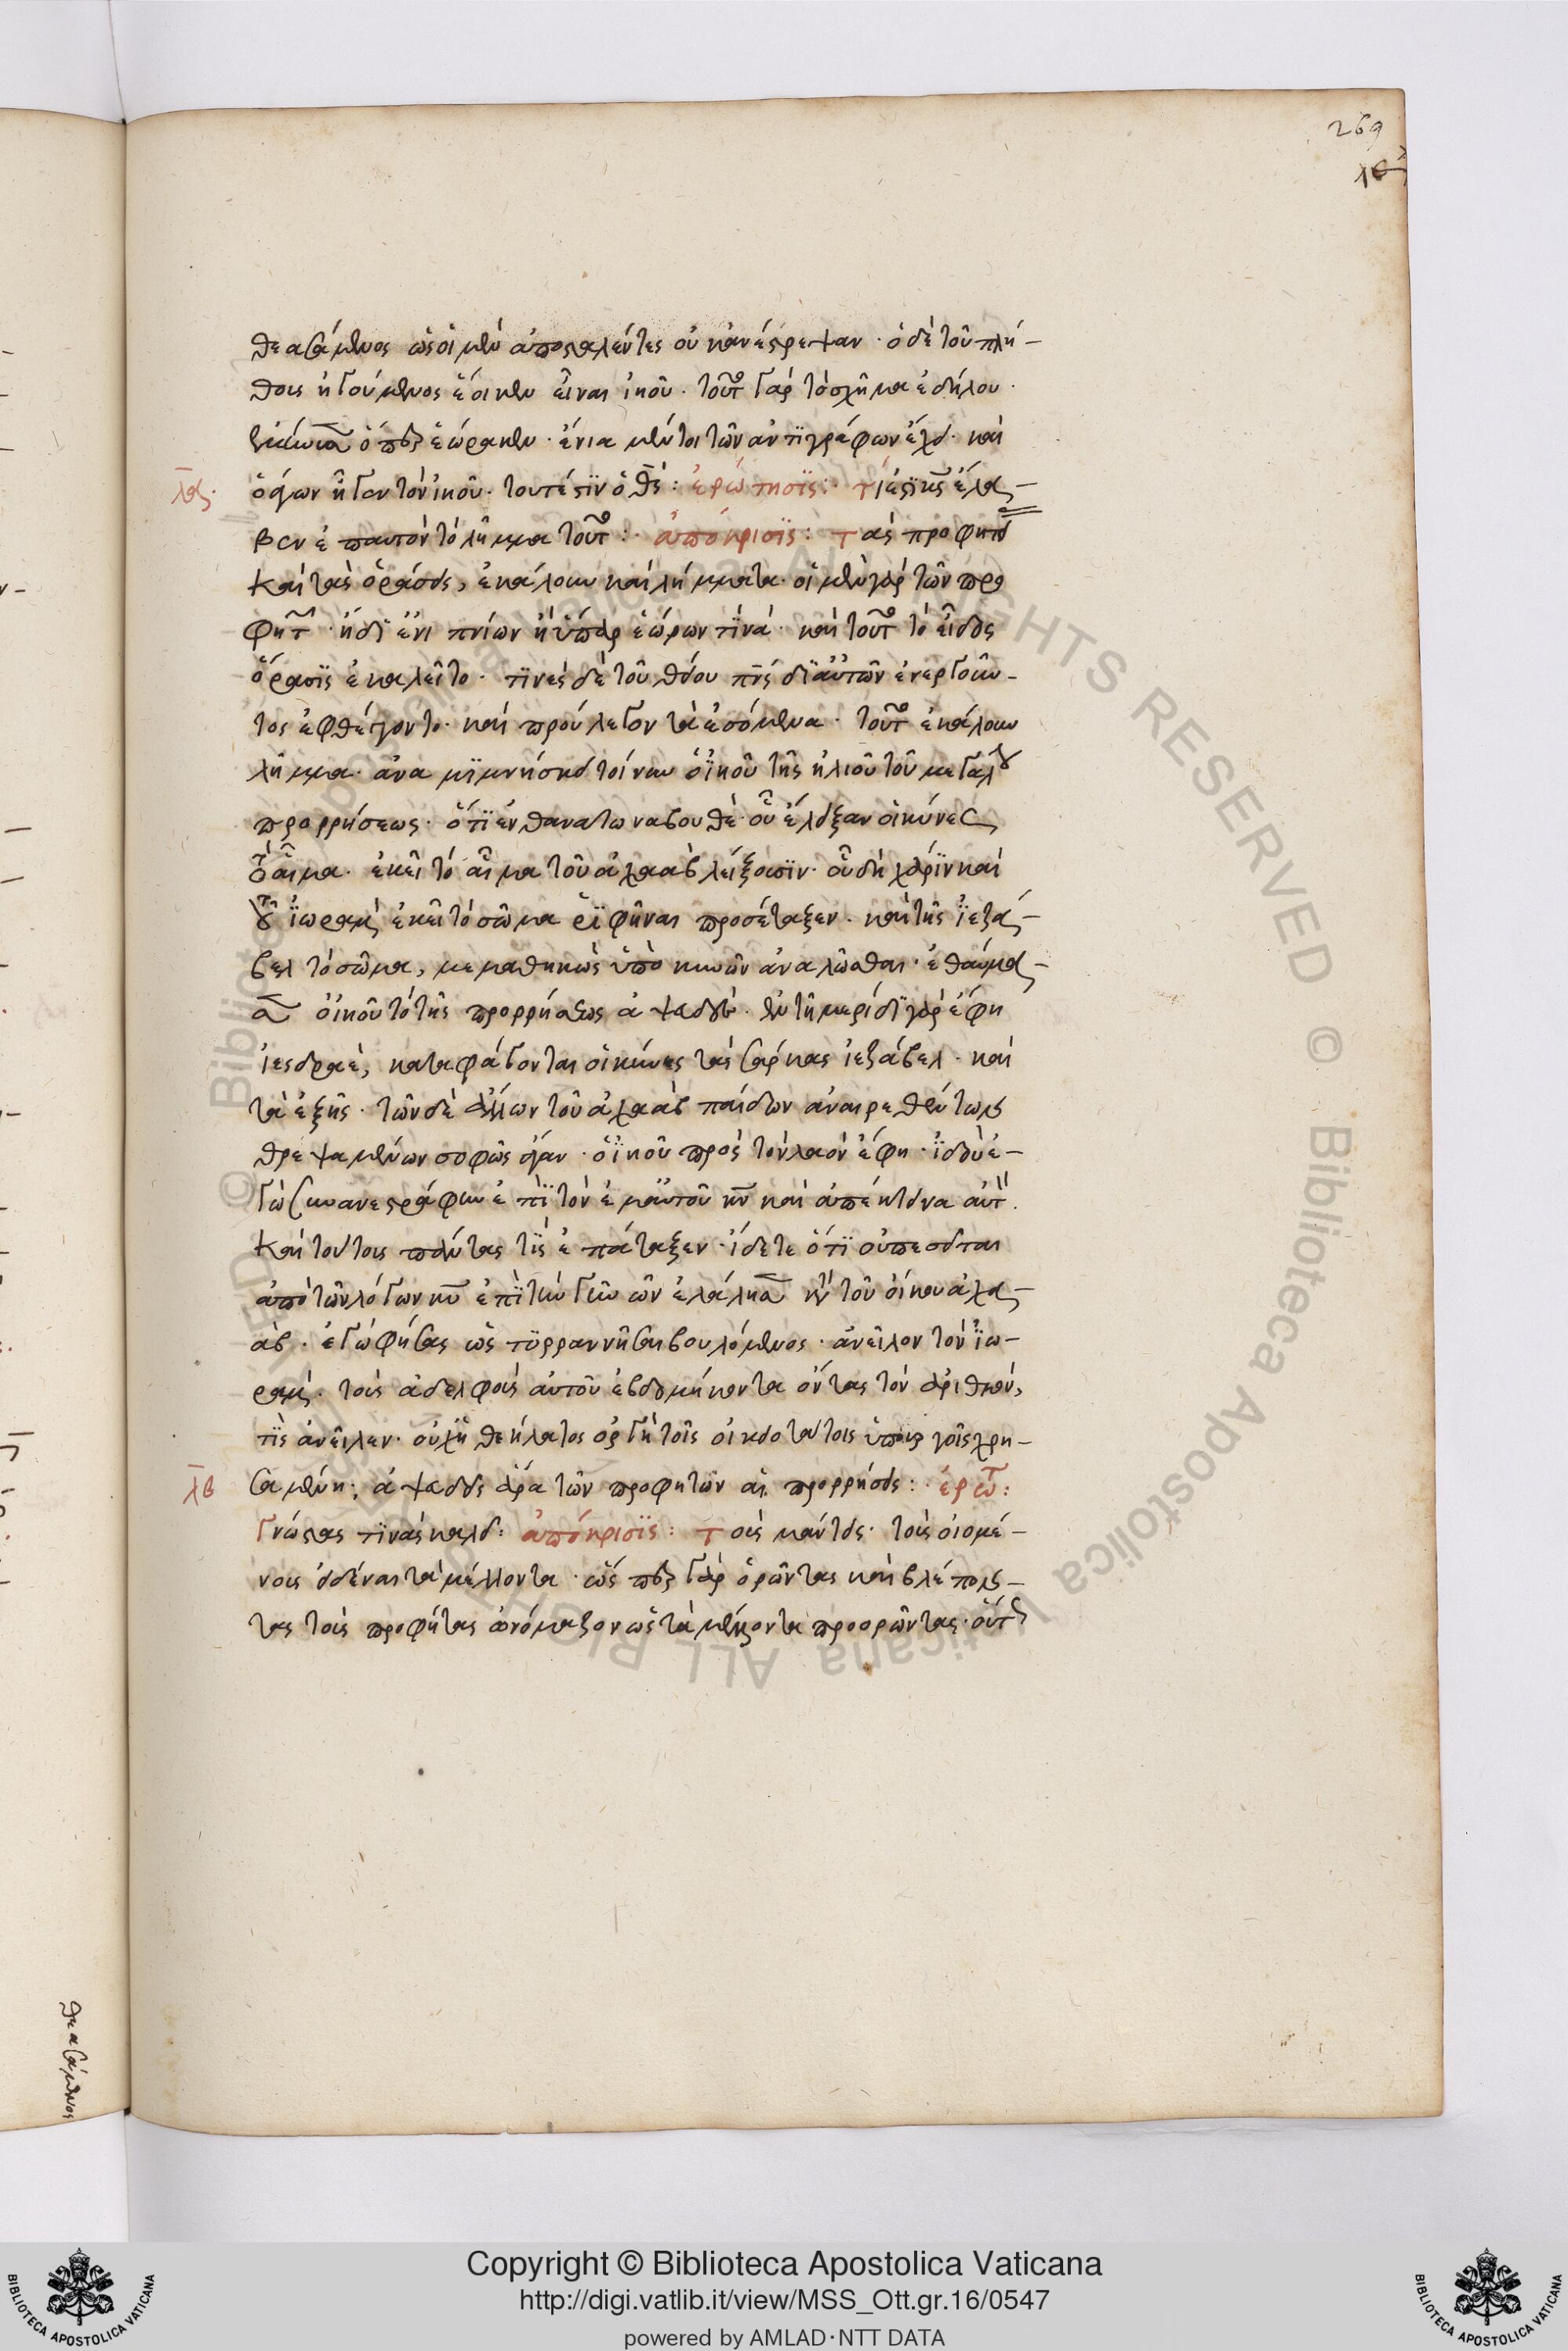 269
θεασάμενος ὡς οἱ μὲν ἀποσταλέντες οὐκ ἀνέστρεψαν · ὁ δὲ τοῦ πλή-
θους ἡγούμενος ἔοικεν εἶναι ἰηοῦ · τοῦτο γὰρ τὸ σχῆμα ἐδήλου ·
ὅπερ ἑώρακεν · ἔνια μέντοι τῶν ἀντϊγράφων ἔχει · καὶ
λα ὁ ἄγων ἦγεν τὸν ἰηοῦ · τουτέστϊν ὁ θς : ἐρώτησϊς : τί ἐστϊ κς ἔλα-
βεν ἐπ αυτὸν τὸ λῆμμα τοῦτο : ἀπόκρισϊς : τὰς προφητεί
καὶ τὰς ὁράσεις, ἐκάλουν καὶ λήμματα · οἱ μὲν γὰρ τῶν προ
φητ · ἠδϊ ἐνυπνίων ἢ ὕπαρ ἑώρων τϊνά · καὶ τοῦτο τὸ εἶδος
ὅρασϊς ἐκαλεῖτο · τϊνὲς δὲ τοῦ θείου πνς δϊ αὐτῶν ἐνεργοῦν-
τος ἐφθέγγοντο · καὶ προύλεγον τὰ ἐσόμενα · τοῦτο ἐκάλουν
λῆμμα · ἀναμϊμνήσκει τοίνυν ὁ ἰηοῦ τῆς ἠλιοῦ τοῦ μεγάλου
προρρήσεως · ὅτϊ ἐν θανάτω ναβουθὲ · οὗ ἔλειξαν οἱ κύνες
τὸ αἷμα · ἐκεῖ τὸ αἷμα τοῦ ἀχαὰβ λείξουσϊν · οὗ δὴ χάρϊν καὶ
τοῦ ἰωρὰμ ἐκεῖ τὸ σῶμα ῥϊφῆναι προσέταξεν · καὶ τῆς ἰεζά-
βελ τὸ σῶμα, μεμαθηκὼς ὑπὸ κυνῶν ἀναλῶσθαι · ἐθαύμα-
σε ὁ ἰηοῦ τὸ τῆς προρρήσεως ἀψευδὲς · ἐν τῆ μερίδϊ γὰρ ἔφη
ἰεσδραὲλ, καταφάγονται οἱ κύνες τὰς σάρκας ἰεζάβελ · καὶ
τὰ ἑξῆς · τῶν δὲ ἄλλων τοῦ ἀχαὰβ παίδων ἀναιρεθέντων
θρεψαμένων σοφῶς ἄγαν · ὁ ἰηοῦ πρὸς τὸν λαὸν ἔφη · ἰδοὺ ἐ-
γὼ συνανεστράφην ἐπὶ τὸν ἐμαυτοῦ κν καὶ ἀπέκτεινα αὐτ ·
καὶ τούτους πάντας τὶς ἐπάταξεν · ἴδετε ὅτϊ οὐ πεσεῖται
ἀπὸ τῶν λόγων κυ ἐπὶ τὴν γῆν ὧν ἐλάλησε κς τοῦ οἴκου ἀχα-
άβ · ἐγὼ φήσας ὡς τϋραννῆσαι βουλόμενος · ἀνεῖλον τὸν ἰω-
ράμ · τοὺς ἀδελφοὺς αὐτοῦ ἑβδομήκοντα ὄντας τὸν ἀριθμόν,
τὶς ἀνεῖλεν · οὐχὶ ἡ θεήλατος ὀργὴ τοῖς οἰκειοτάτοις ὑπουργοῖς χρη-
λβ σαμένη ; ἀψευδεῖς ἄρα τῶν προφητῶν αἱ προρρήσεις : ἐρώτ :
γνώστας τϊνὰς καλεῖ : ἀπόκρισϊς : τοὺς μάντεις · τοὺς οἰομέ-
νους εἰδέναι τὰ μέλλοντα · ὥσπερ γὰρ ὁρῶντας καὶ βλέπον-
τας τοὺς προφήτας ὠνόμαζον ὡς τὰ μέλλοντα προορῶντας · οὕτω
θεασάμενος
Copyright © Biblioteca Apostolica Vaticana
http://digi.vatlib.it/view/MSS_Ott.gr.16/0547
powered by AMLAD·NTT DATA